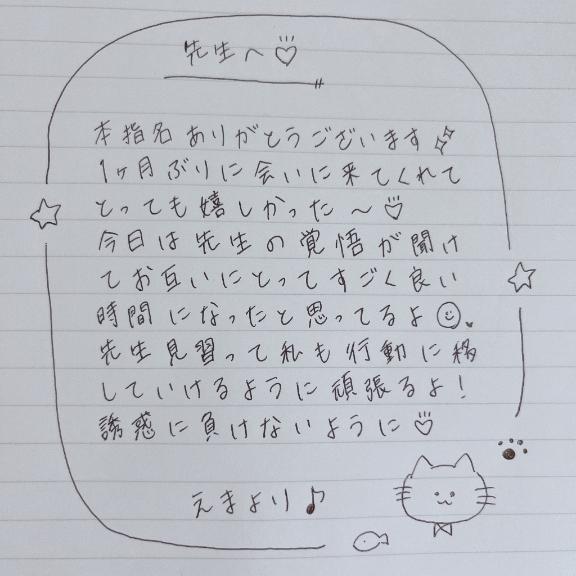 先生へ♡
本指名ありがとうございます✨
1ヶ月ぶりに会いに来てくれて
とっても嬉しかった〜♡
今日は先生の覚悟が聞け
てお互いにとってすごく良い
時間になったと思ってるよ☺。
先生見習って私も行動に移
していけるように頑張るよ！
誘惑に負けないように♡
えまより♪